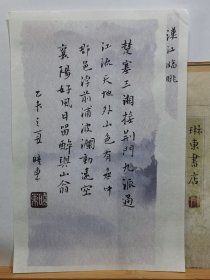 漢江臨眺
楚塞三湘接荆門九派通
江流天地外山色有無中
郡邑浮前浦波瀾動遠空
襄陽好風日留醉與山翁
乙未之夏
東書店